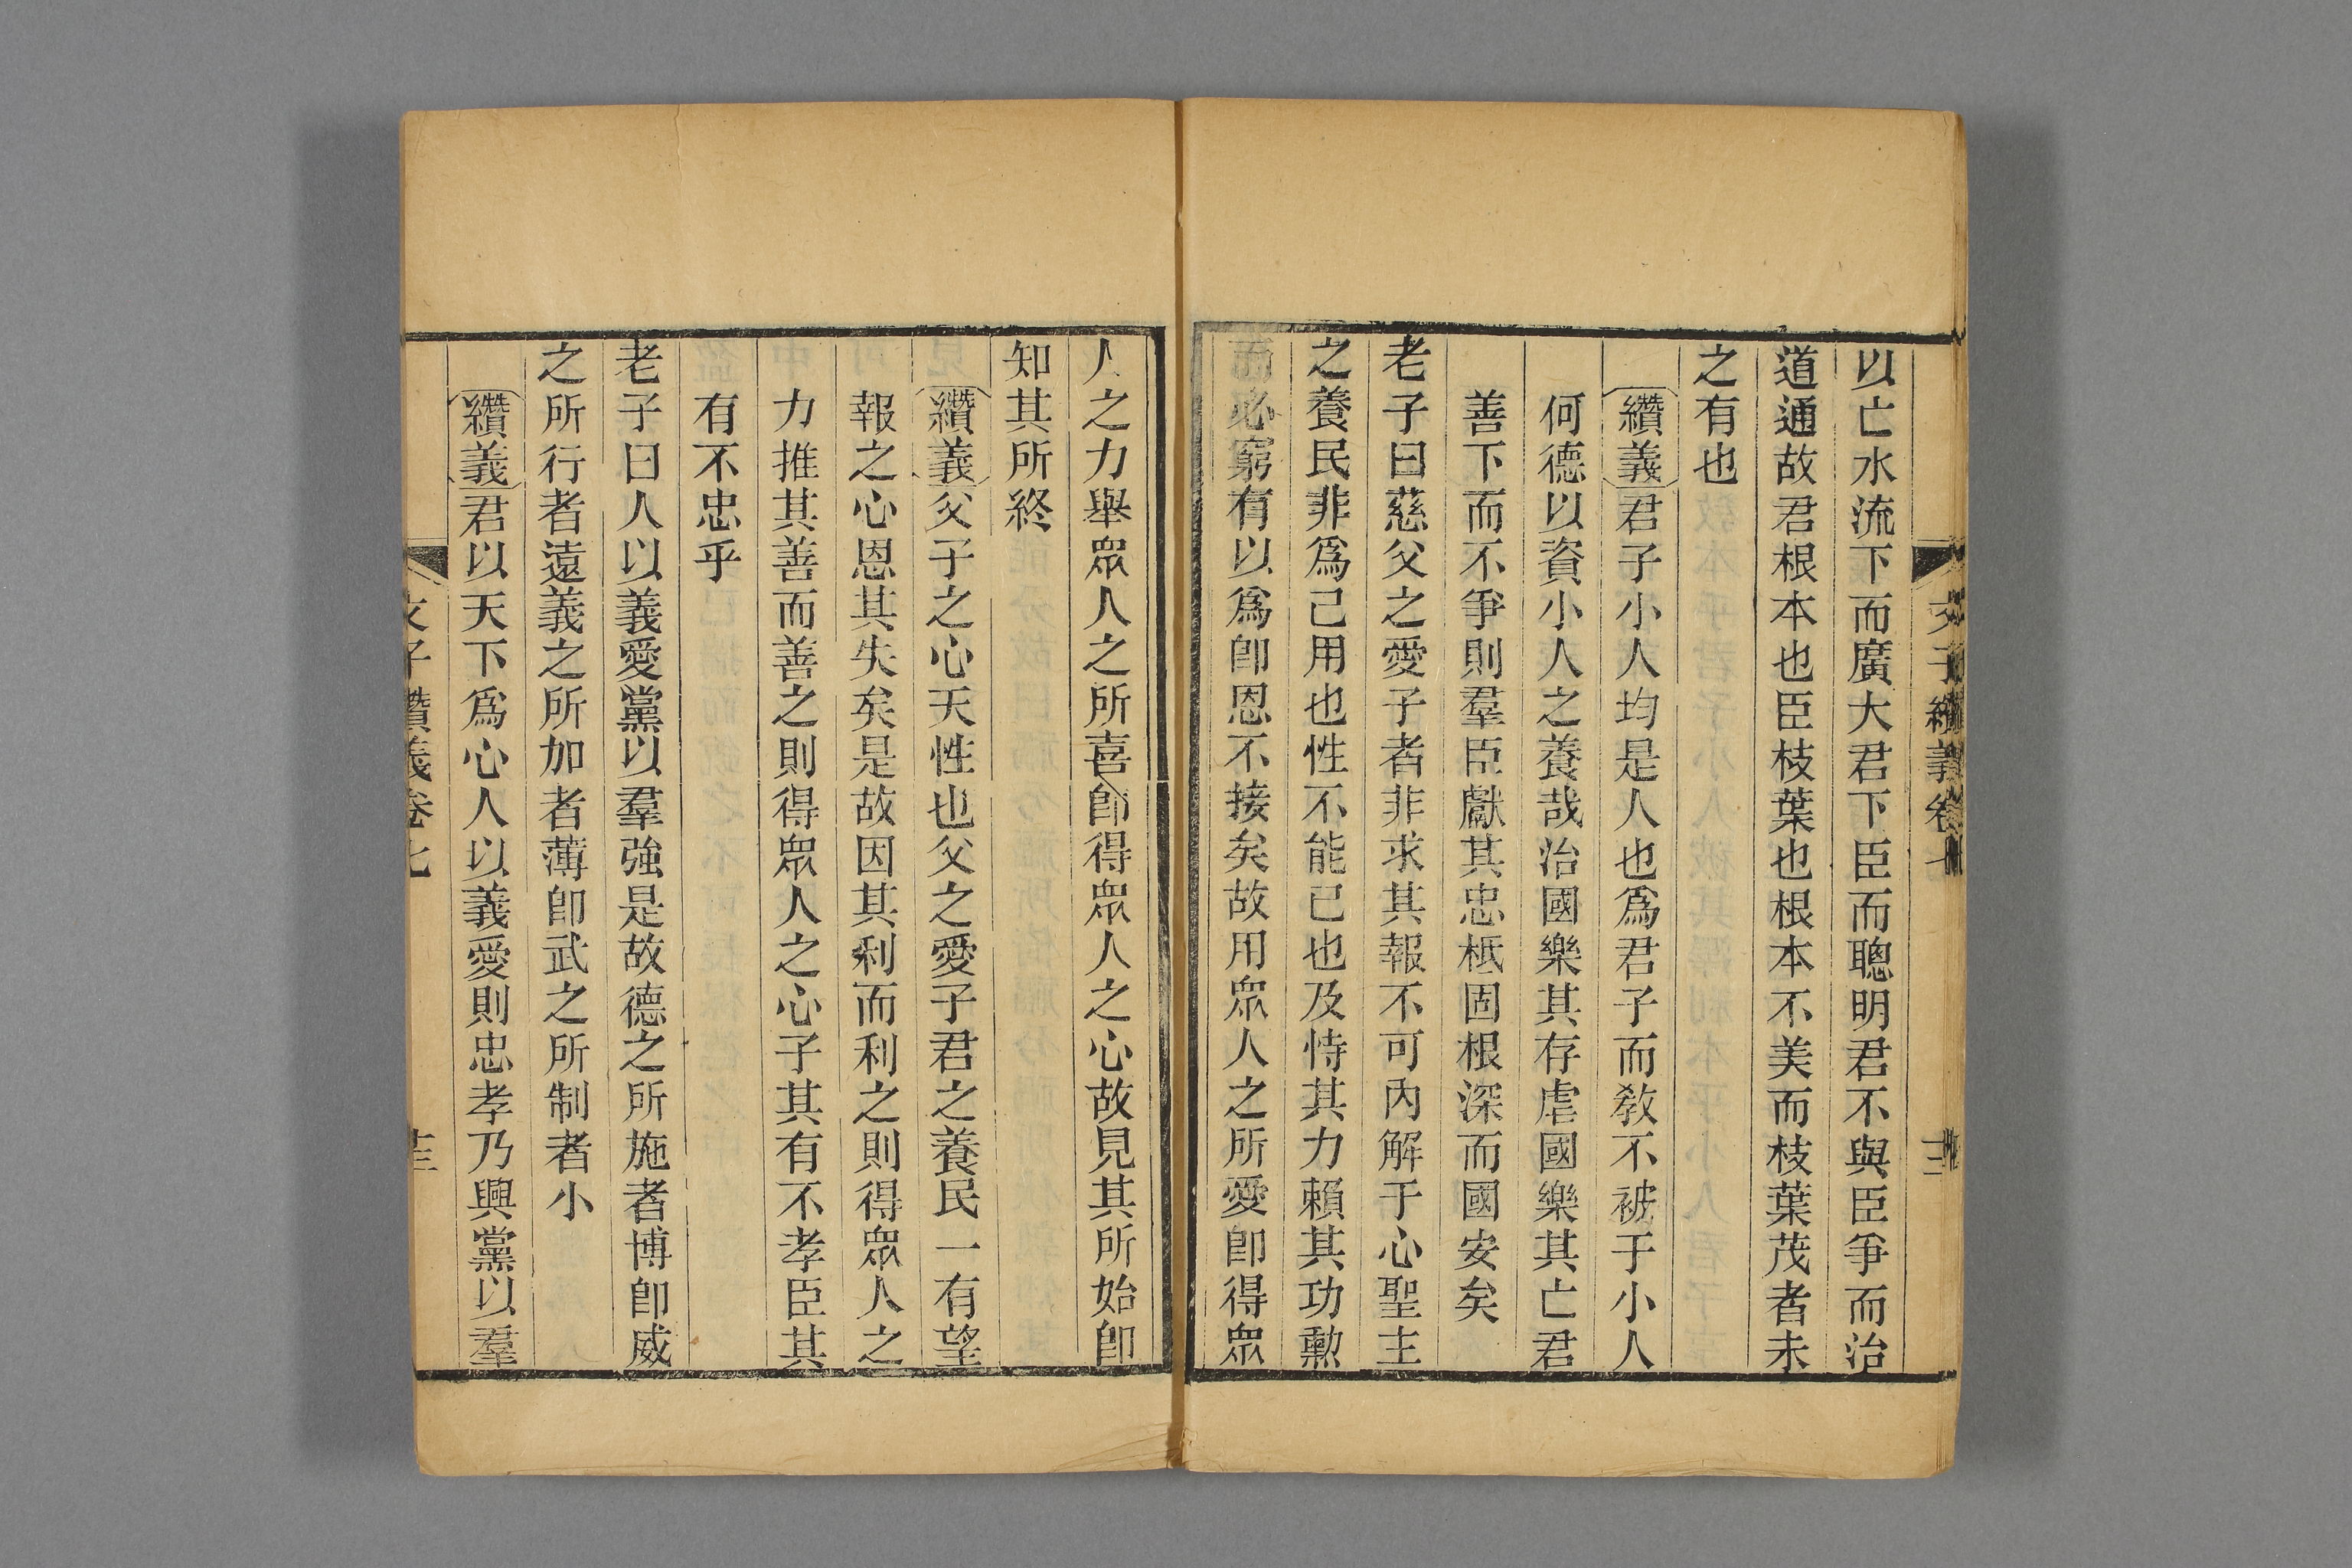 文子纘義卷七
以亡水流下而廣大君下臣而聰明君不與臣爭而治
道通故君根本也臣枝葉也根本不美而枝葉茂者未
之有也
纘義君子小人均是人也爲君子而敎不被于小人
何德以資小人之養哉治國樂其存虐國樂其亡君
善下而不爭則羣臣獻其忠柢固根深而國安矣
老子曰慈父之愛子者非求其報不可內解于心聖主
之養民非爲己用也性不能已也及恃其力賴其功勳
而必窮有以爲卽恩不接矣故用眾人之所愛卽得眾
人之力舉眾人之所喜卽得眾人之心故見其所始卽
知其所終
纘義父子之心天性也父之愛子君之養民一有望
報之心恩其失矣是故因其利而利之則得眾人之
力推其善而善之則得眾人之心子其有不孝臣其
有不忠乎
老子曰人以義愛黨以羣強是故德之所施者博卽威
之所行者遠義之所加者薄卽武之所制者小
纘義君以天下爲心人以義愛則忠孝乃興黨以羣
文子纘義卷七